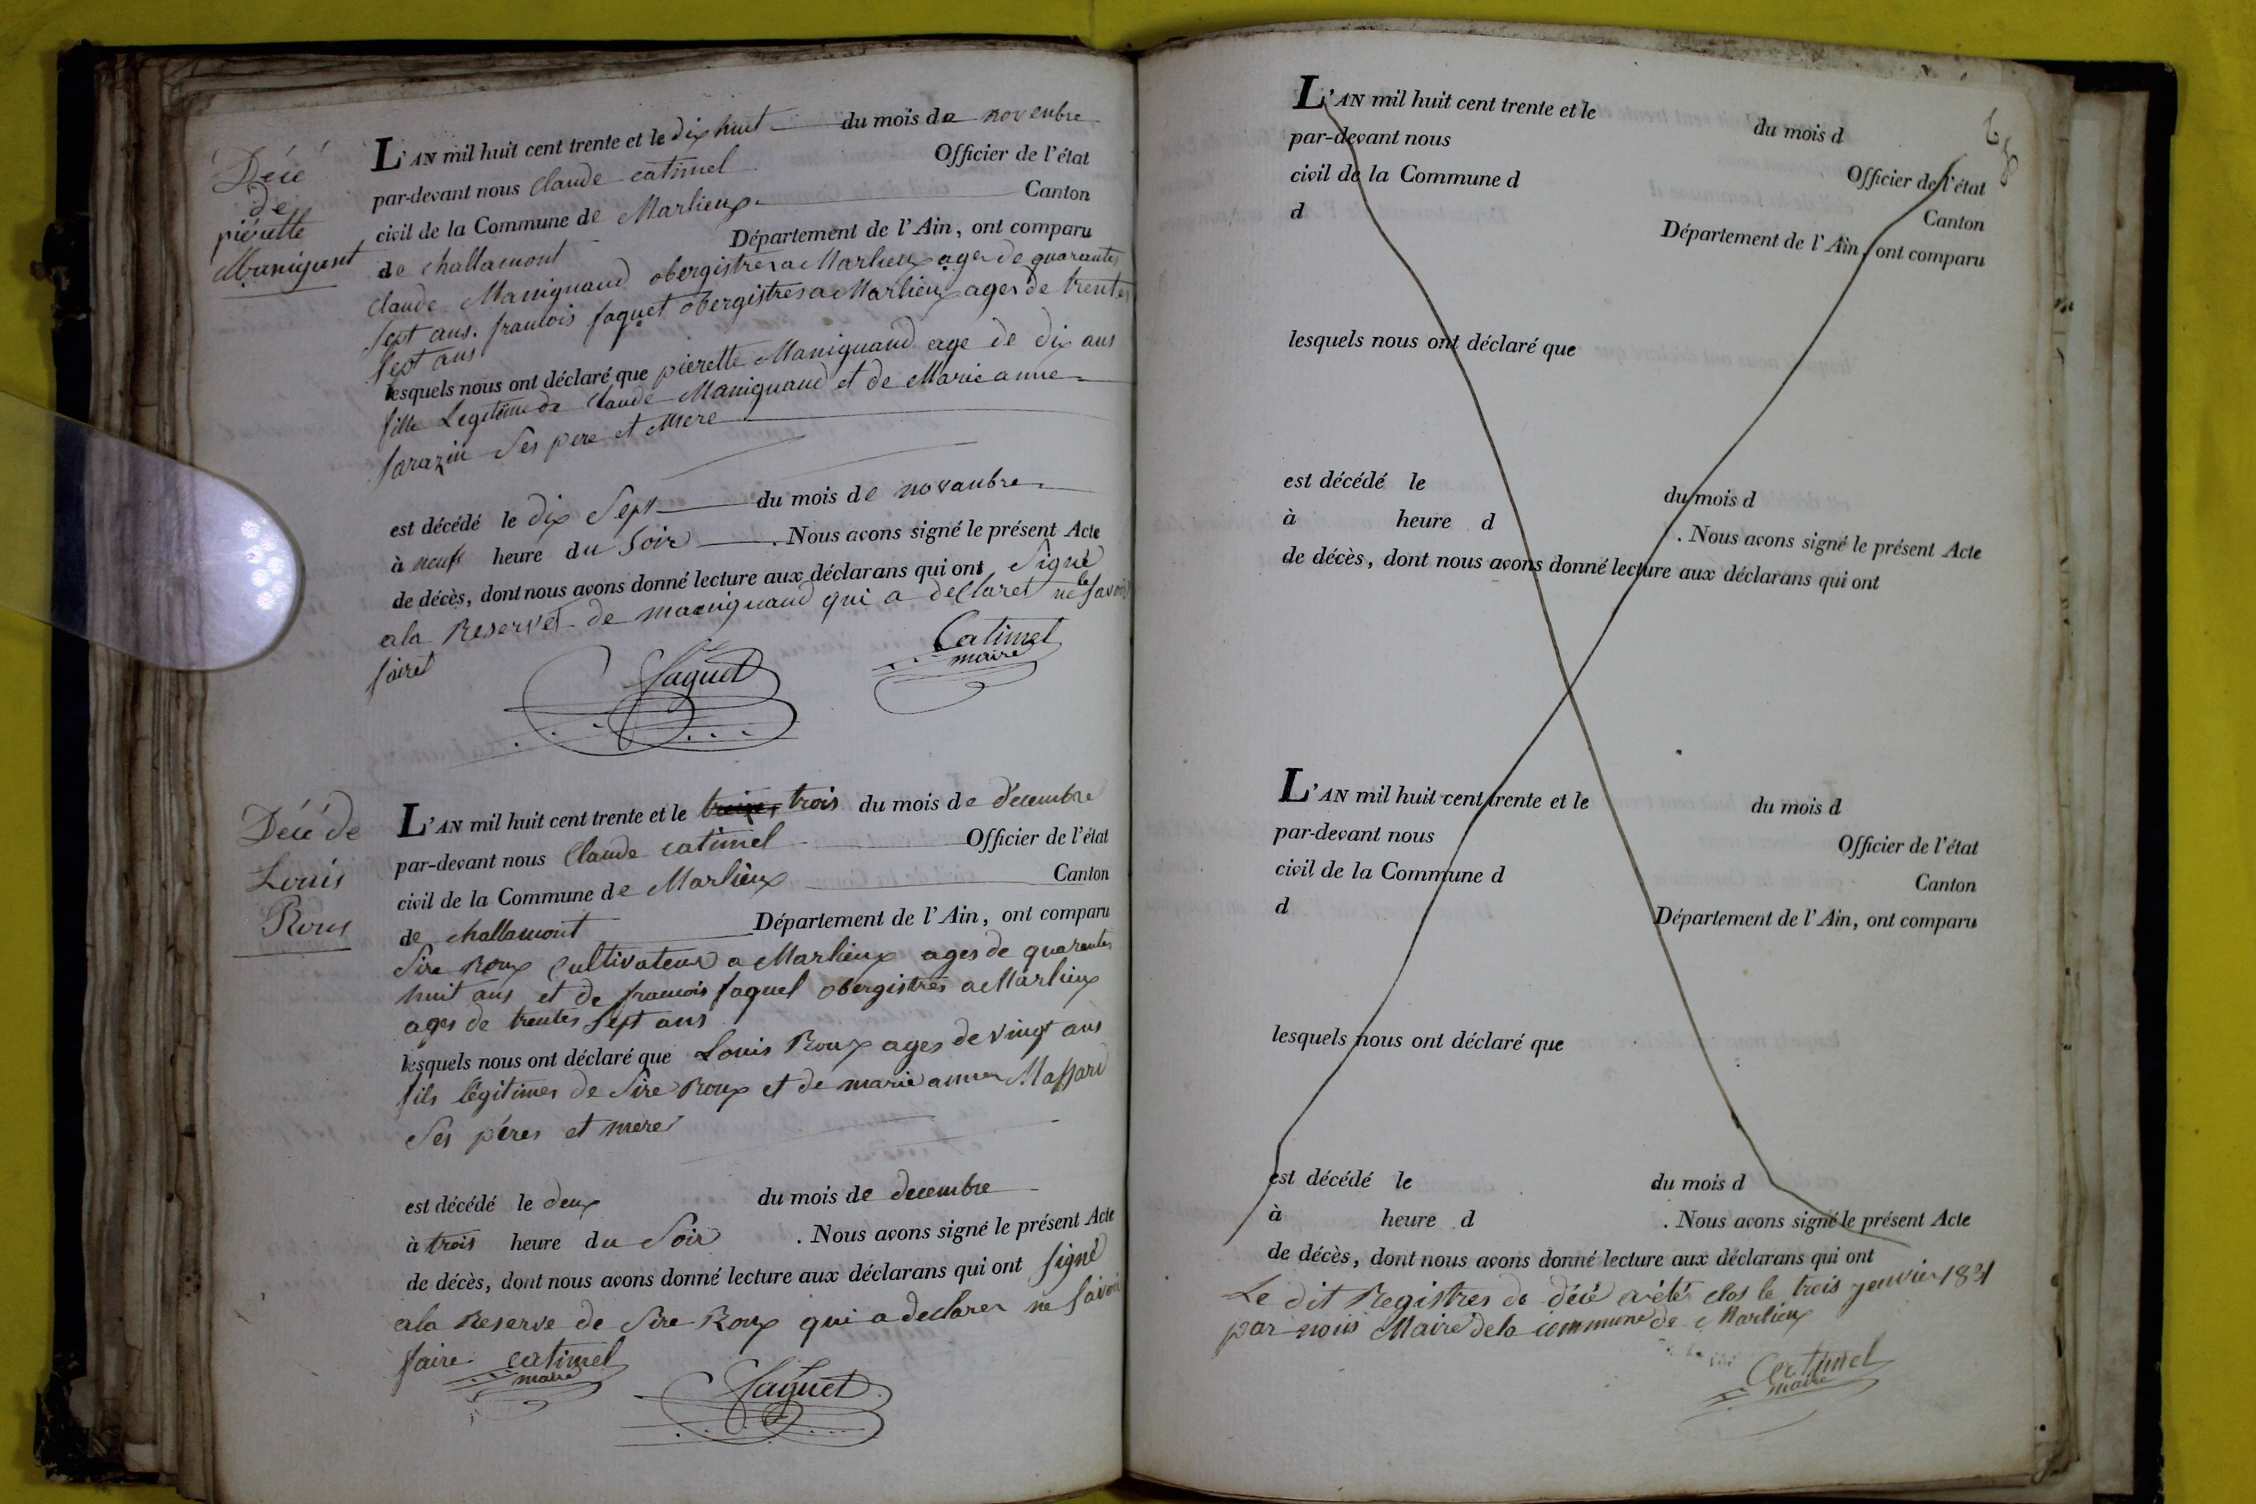 Décé
de
pierette
Manigant
L'AN mil huit cent trente et le dix huit du mois de novenbre
par-devant nous Claude catimel Officier de l'état
civil de la Commune de Marlieux Canton
de challamont Département de l'Ain, ont comparu
Claude Manignand obergistres a Marlieux ages de quarantes
sept ans. francois faquet obergistres a Marlieux ages de trentes
sept ans
lesquels nous ont déclaré que pierette Manignand age de dix ans
fille Legitime de Claude Manignand et de Marie anne
sarazin Ses pere et Mere
est décédé le dix Sept du mois de novanbre
à neufs heure du Soir . Nous avons signé le présent Acte
de décès, dont nous avons donné lecture aux déclarans qui ont Signé
ala Reservet de manignand qui a declaret ne le savoir
fairet
faquet
Catimel
maire
Décé de
Louis
Roux
L'AN mil huit cent trente et le treizes trois du mois de décembre
par-devant nous Claude catimel Officier de l'état
civil de la Commune de Marlieux Canton
de challamont Département de l'Ain, ont comparu
Sire Roux Cultivateur a Marlieux ages de quarantes
huit ans et de francois faquel obergistres a Marlieux
ages de trentes Sept ans
lesquels nous ont déclaré que Louis Roux ages de vingt ans
fils légitimes de Sire Roux et de marie annes Massard
Ses péres et meres
est décédé le deux du mois de decembre
à trois heure du Soir . Nous avons signé le présent Acte
de décès, dont nous avons donné lecture aux déclarans qui ont signé
ala Reserve de Sire Roux qui a declarer ne savoir
faire catimel
maire
faquet
L'AN mil huit cent trente et le du mois d
par-devant nous Officier de l'état
civil de la Commune d Canton
d Département de l'Ain, ont comparu
lesquels nous ont déclaré que
est décédé le du mois d
à heure d . Nous avons signé le présent Acte
de décès, dont nous avons donné lecture aux déclarans qui ont
L'AN mil huit cent trente et le du mois d
par-devant nous Officier de l'état
civil de la Commune d Canton
d Département de l'Ain, ont comparu
lesquels nous ont déclaré que
est décédé le du mois d
à heure d . Nous avons signé le présent Acte
de décès, dont nous avons donné lecture aux déclarans qui ont
Le dit Registres de décé a étés clos le trois jenvier 1831
par nous Maire dela commune de Marlieux
Catimel
maire